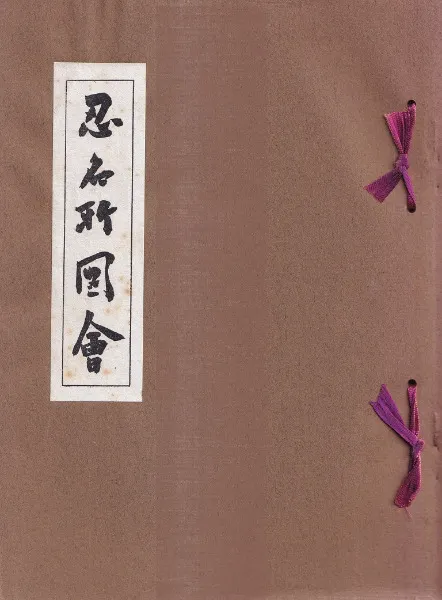 忍名所圖會